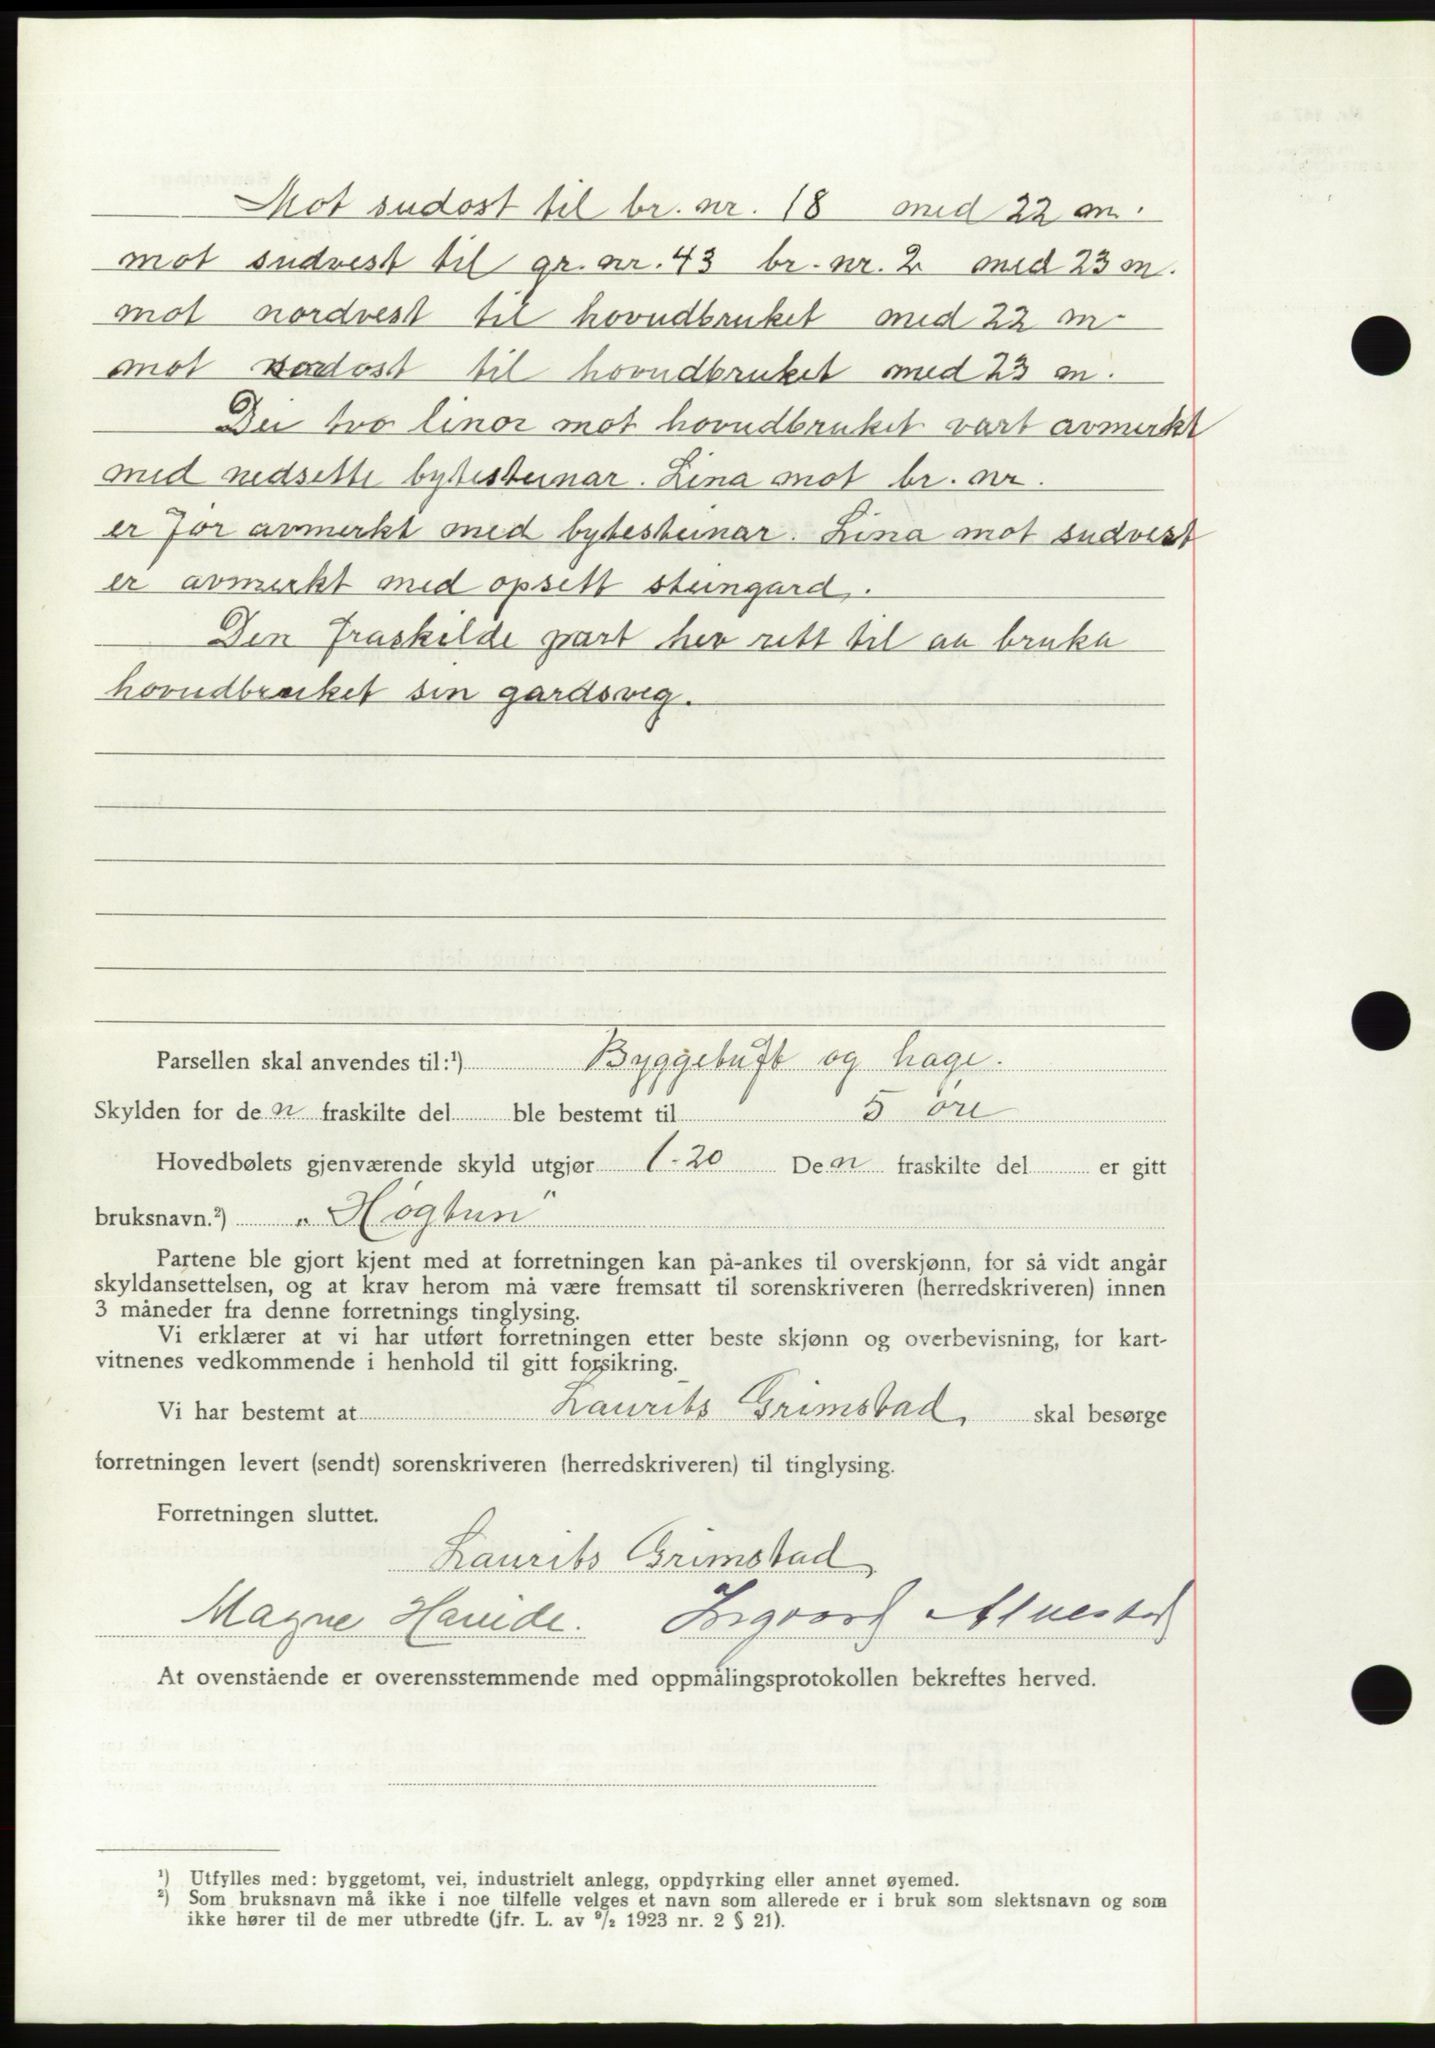 Mot sudost til br. nr. 18 med 22 m.
mot sudvest til gr. nr. 43 br. nr. 2 med 23 m.
mot nordvest til hovudbruket med 22 m.
mot nordost til hovudbruket med 23 m.
Dei tvo linor mot hovudbruket vart avmerkt
med nedsette bytesteinar. Lina mot br. nr.
er for avmerkt med bytesteinar. Lina mot sudvest
er avmerkt med opsett steingard.
Den fraskilde part hev rett til aa bruka
hovudbruket sin gardsveg.
Parsellen skal anvendes til:¹) Byggetuft og hage.
Skylden for den fraskilte del ble bestemt til 5 øre
Hovedbølets gjenværende skyld utgjør 1.20 Den fraskilte del er gitt
bruksnavn.²) „Høgtun"
Partene ble gjort kjent med at forretningen kan på-ankes til overskjønn, for så vidt angår
skyldansettelsen, og at krav herom må være fremsatt til sorenskriveren (herredskriveren) innen
3 måneder fra denne forretnings tinglysing.
Vi erklærer at vi har utført forretningen etter beste skjønn og overbevisning, for kart-
vitnenes vedkommende i henhold til gitt forsikring.
Vi har bestemt at Laurits Grimstad, skal besørge
forretningen levert (sendt) sorenskriveren (herredskriveren) til tinglysing.
Forretningen sluttet.
Laurits Grimstad,
Magne Hareide. Ingvard Alvestad
At ovenstående er overensstemmende med oppmålingsprotokollen bekreftes herved.
¹) Utfylles med: byggetomt, vei, industrielt anlegg, oppdyrking eller annet øyemed.
²) Som bruksnavn må ikke i noe tilfelle velges et navn som allerede er i bruk som slektsnavn og som
ikke hører til de mer utbredte (jfr. L. av 9/2 1923 nr. 2 § 21).